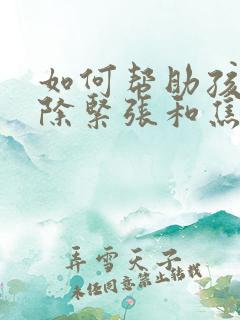 如何帮助孩
除紧张和焦
弄雪天子
未经同意禁止转载